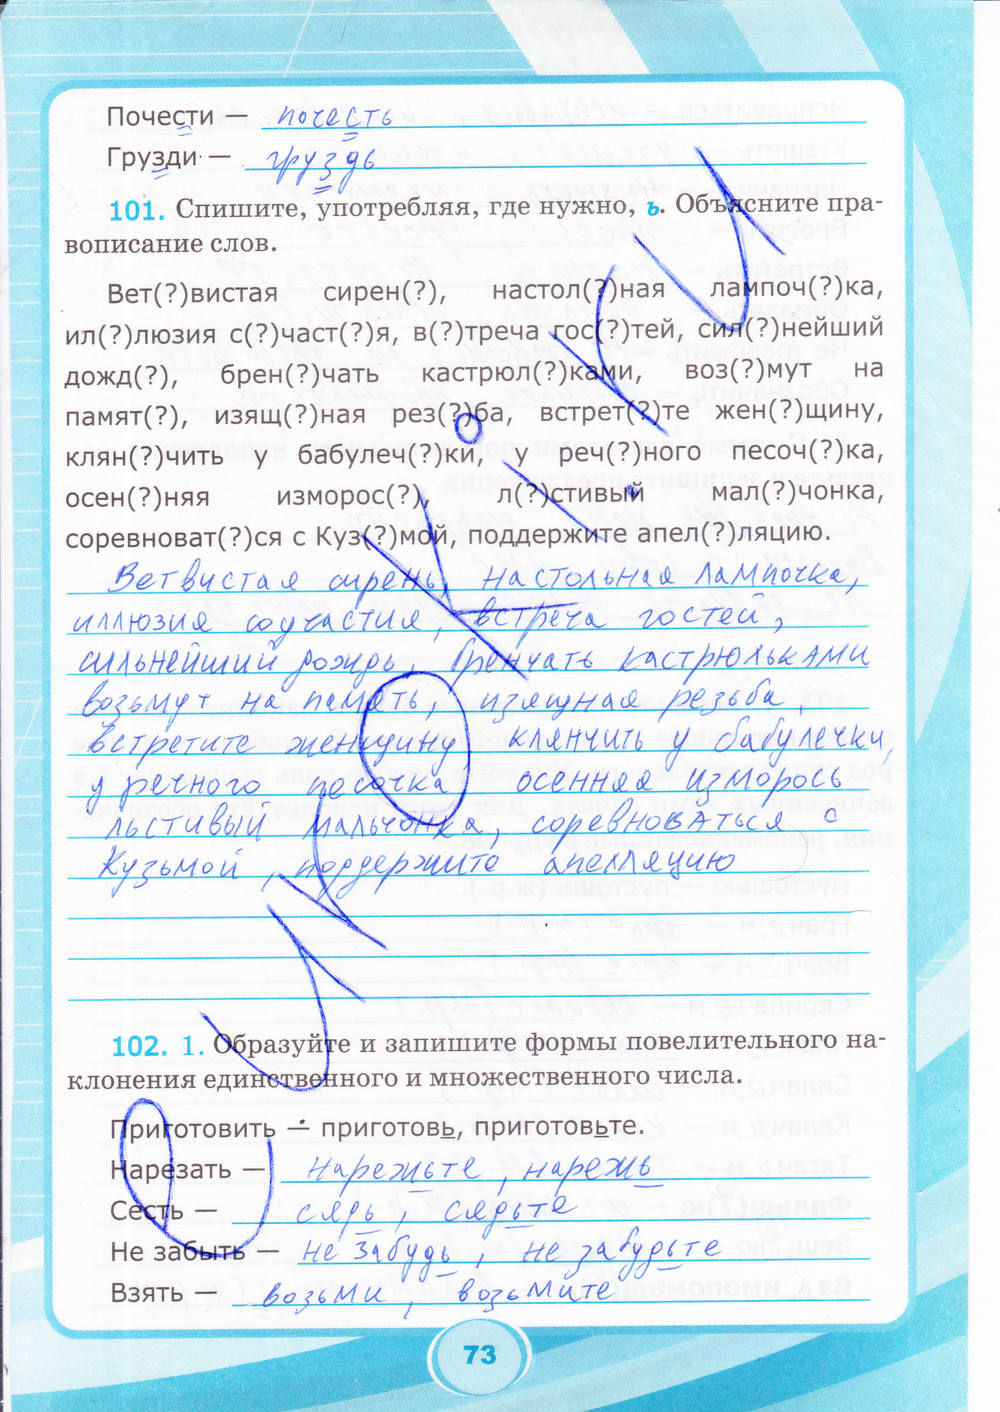 Почести — почесть
Грузди — груздь
101. Спишите, употребляя, где нужно, ь. Объясните пра-
вописание слов.
Вет(?)вистая сирен(?), настол(?)ная лампоч(?)ка,
ил(?)люзия с(?)част(?)я, в(?)треча гос(?)тей, сил(?)нейший
дожд(?), брен(?)чать кастрюл(?)ками, воз(?)мут на
памят(?), изящ(?)ная рез(?)ба, встрет(?)те жен(?)щину,
клян(?)чить у бабулеч(?)ки, у реч(?)ного песоч(?)ка,
осен(?)няя изморос(?), л(?)стивый мал(?)чонка,
соревноват(?)ся с Куз(?)мой, поддержите апел(?)ляцию.
Ветвистая сирень, настольная лампочка,
иллюзия соучастия, встреча гостей,
сильнейший дождь, бренчать кастрюльками
возьмут на память, изящная резьба,
встретите женщину клянчить у бабулечки,
у речного песочка осенняя изморось
льстивый мальчонка, соревноваться с
Кузьмой, поддержите апелляцию
102. 1. Образуйте и запишите формы повелительного на-
клонения единственного и множественного числа.
Приготовить — приготовь, приготовьте.
Нарезать — нарежьте, нарежь
Сесть — сядь, сядьте
Не забыть — не забудь, не забудьте
Взять — возьми, возьмите
73